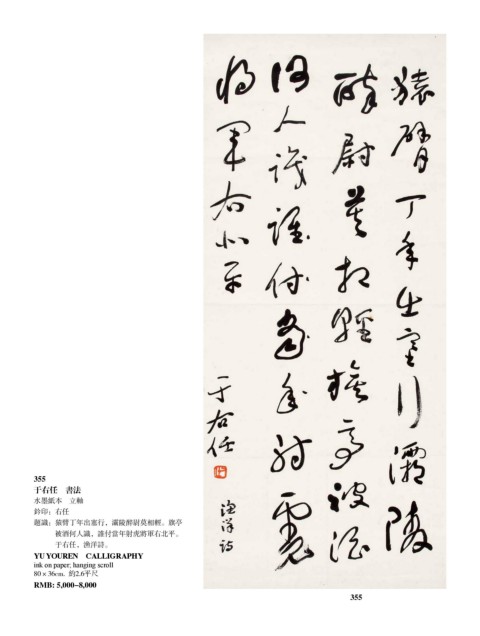 猿臂丁年出塞行灞陵
醉尉莫相輕旗亭被酒
何人識誰付當年射虎
將軍右北平
于右任
漁洋詩
355
于右任　書法
水墨紙本　立軸
鈐印：右任
題識：猿臂丁年出塞行，灞陵醉尉莫相輕。旗亭
被酒何人識，誰付當年射虎將軍右北平。
于右任，漁洋詩。
YU YOUREN CALLIGRAPHY
ink on paper; hanging scroll
80 x 36cm. 約2.6平尺
RMB: 5,000–8,000
355